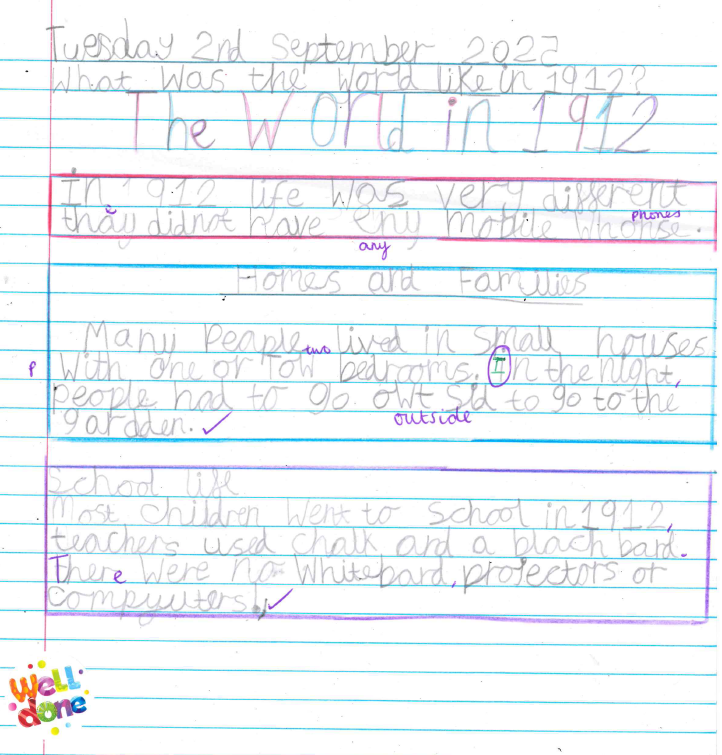 Tuesday 2nd September 2022
What was the World like in 1912?
The World in 1912
In 1912 life was very different
they didnot have eny mobile
phones
any
Homes and Families
Many Peaple lived in small houses
two
P With one or Tow bedrooms. In the night,
people had to go owt sid to go to the
outside
gardden.
School life
Most children Went to School in 1912,
teachers used chalk and a blach bard.
There Were no Whitebard, projectors or
Compyuters.
Well
done